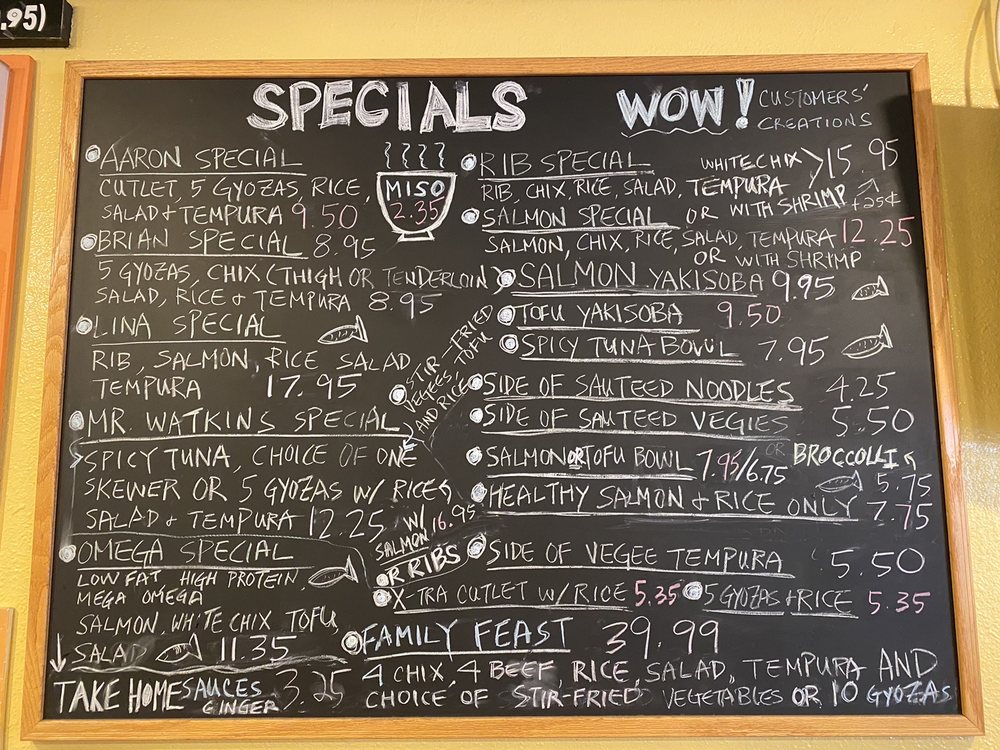 .95)
SPECIALS
WOW! CUSTOMERS'
CREATIONS
AARON SPECIAL
CUTLET, 5 GYOZAS, RICE,
SALAD + TEMPURA 9.50
MISO
2.35
BRIAN SPECIAL 8.95
5 GYOZAS, CHIX (THIGH OR TENDERLOIN)
SALAD, RICE + TEMPURA 8.95
LINA SPECIAL
RIB, SALMON, RICE SALAD,
TEMPURA 17.95
STIR-FRIED
VEGEES, TOFU
AND RICE
MR. WATKINS SPECIAL
SPICY TUNA, CHOICE OF ONE
SKEWER OR 5 GYOZAS W/ RICE,
SALAD + TEMPURA 12.25
W/ 16.95
SALMON
OR RIBS
OMEGA SPECIAL
LOW FAT, HIGH PROTEIN,
MEGA OMEGA
SALMON, WHITE CHIX TOFU,
SALAD 11.35
TAKE HOME SAUCES 3.25
GINGER
RIB SPECIAL WHITE CHIX > 15.95
RIB, CHIX, RICE, SALAD, TEMPURA
OR WITH SHRIMP +25¢
SALMON SPECIAL
SALMON, CHIX, RICE, SALAD, TEMPURA 12.25
OR WITH SHRIMP
SALMON YAKISOBA 9.95
TOFU YAKISOBA 9.50
SPICY TUNA BOWL 7.95
SIDE OF SAUTEED NOODLES 4.25
SIDE OF SAUTEED VEGIES 5.50
OR BROCCOLLI
5.75
SALMON OR TOFU BOWL 7.95/6.75
HEALTHY SALMON + RICE ONLY 7.75
SIDE OF VEGEE TEMPURA 5.50
X-TRA CUTLET W/ RICE 5.35
5 GYOZAS + RICE 5.35
FAMILY FEAST 39.99
4 CHIX, 4 BEEF, RICE, SALAD, TEMPURA AND
CHOICE OF STIR-FRIED VEGETABLES OR 10 GYOZAS